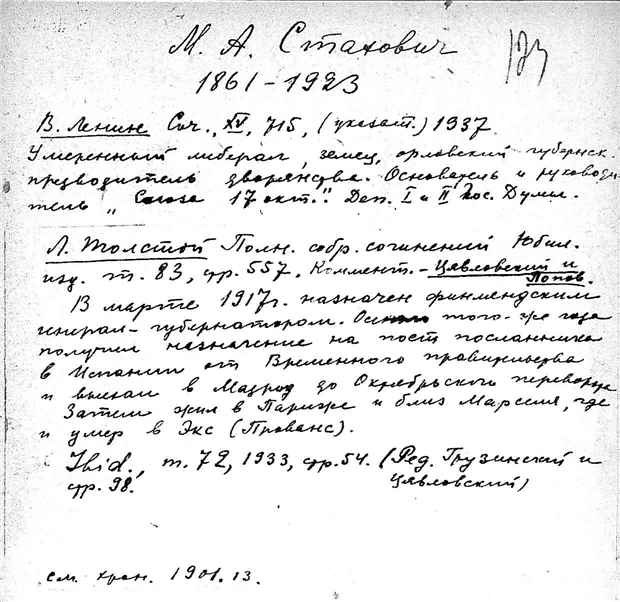 М. А. Стахович
1861-1923
В. Ленин Соч., XV, 715, (указат.) 1937
Умеренный либерал, земец, орловский губернск.
предводитель дворянства. Основатель и руководи-
тель „Союза 17 окт.“. Деп. I и II Гос. Думы.
Л. Толстой Полн. собр. сочинений Юбил.
изд. т. 83, стр. 557. Коммент. - Цявловский и
Попов.
В марте 1917г. назначен финляндским
генерал-губернатором. Осенью того-же года
получил назначение на пост посланника
в Испании от Временного правительства
и выехал в Мадрид до Октябрьского переворота
Затем жил в Париже и близ Марселя, где
и умер в Экс (Прованс).
Ibid., т. 72, 1933, стр. 54. (Ред. Грузинский и
стр. 98. Цявловский)
см. хрон. 1901.13.